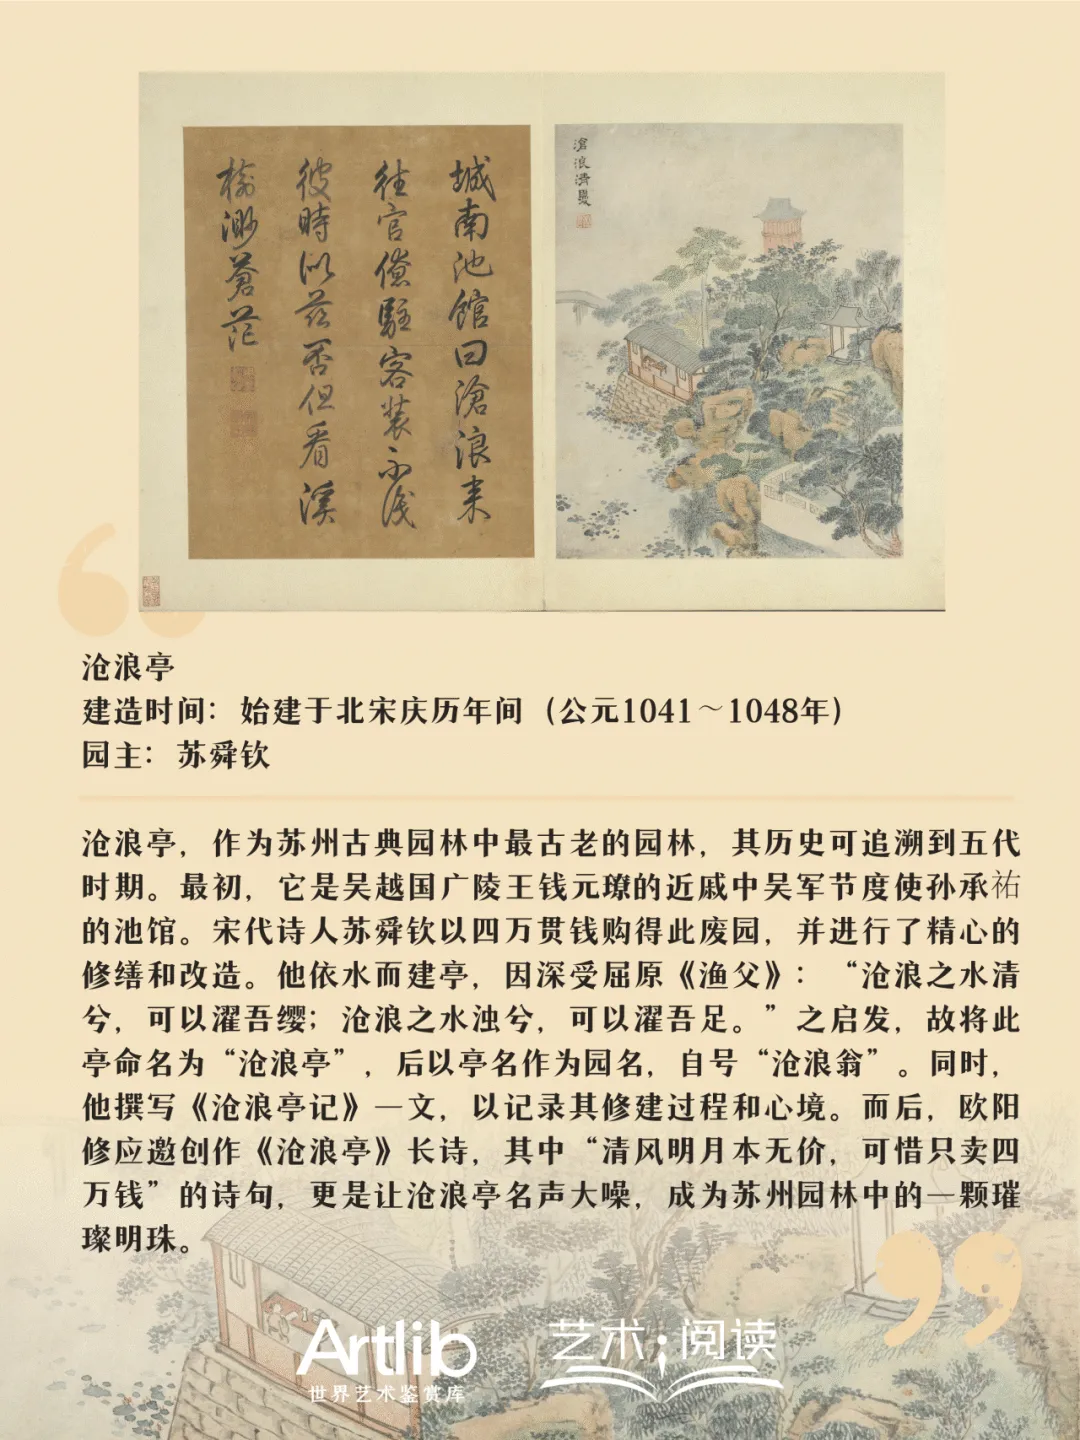 城南池館曰滄浪来
往官僚駐客装不浅
彼時似茲否但看溪
樹渺蒼茫
滄浪清夏
沧浪亭
建造时间：始建于北宋庆历年间（公元1041～1048年）
园主：苏舜钦
沧浪亭，作为苏州古典园林中最古老的园林，其历史可追溯到五代
时期。最初，它是吴越国广陵王钱元璙的近戚中吴军节度使孙承祐
的池馆。宋代诗人苏舜钦以四万贯钱购得此废园，并进行了精心的
修缮和改造。他依水而建亭，因深受屈原《渔父》：“沧浪之水清
兮，可以濯吾缨；沧浪之水浊兮，可以濯吾足。”之启发，故将此
亭命名为“沧浪亭”，后以亭名作为园名，自号“沧浪翁”。同时，
他撰写《沧浪亭记》一文，以记录其修建过程和心境。而后，欧阳
修应邀创作《沧浪亭》长诗，其中“清风明月本无价，可惜只卖四
万钱”的诗句，更是让沧浪亭名声大噪，成为苏州园林中的一颗璀
璨明珠。
Artlib
世界艺术鉴赏库
艺术；阅读